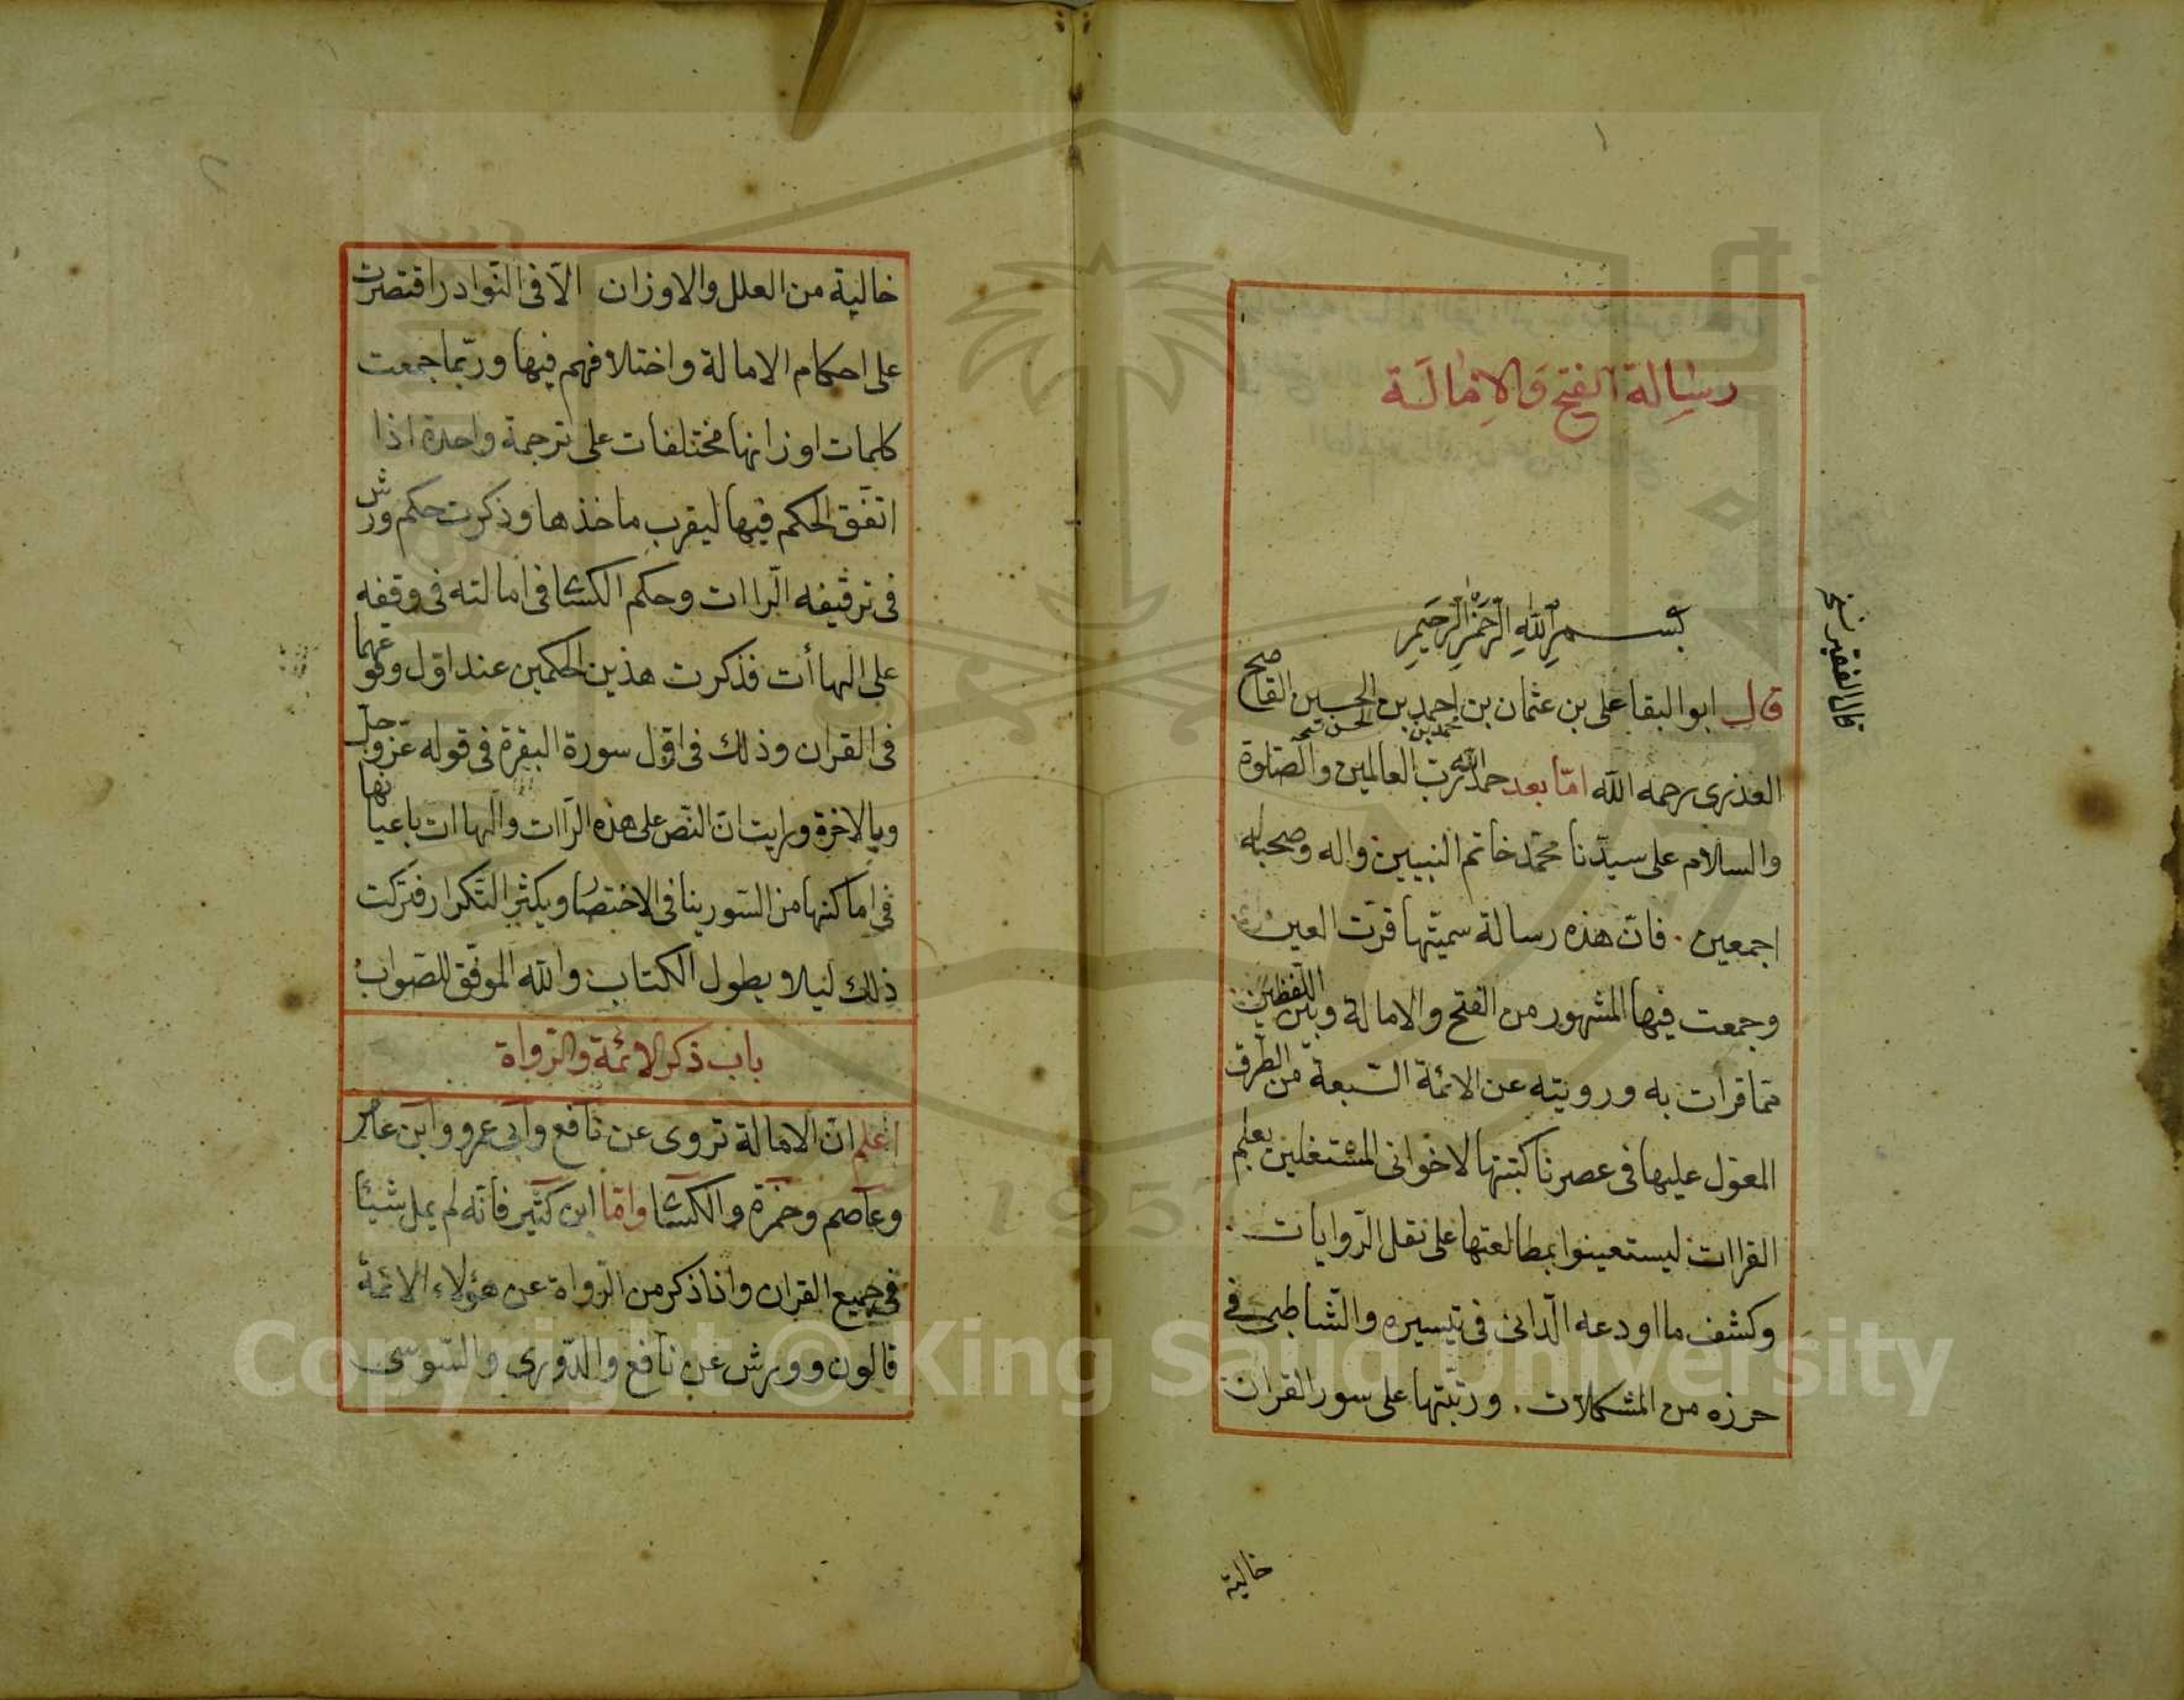 ١
رسالة الفتح والامالة
بسم الله الرحمن الرحيم
قال ابو البقا على بن عثمان بن احمد بن الحسين القاصح
محمد بن الحسن نسخه
قال الفقير نسخه
العذرى رحمه الله امّا بعد حمد الله ربّ العالمين والصّلوة
والسلام على سيدّنا محمّد خاتم النبيين واله وصحبه
اجمعين . فانّ هذه رسالة سميّتها قرّت العين
وجمعت فيها المشهور من الفتح والامالة وبين اللّفظين
ممّا قرات به ورويته عن الائمّة السّبعة من الطّرق
المعوّل عليها فى عصرنا كتبتها لاخوانى المشتغلين بعلم
القراات ليستعينوا بمطالعتها على نقل الرّوايات
وكشف ما اودعه الّدانى فى تيسيره والشّاطبى فى
حرزه من المشكلات . ورتّبتها على سور القران
خالية
٢
خالية من العلل والاوزان الّا فى النّوادر اقتصرت
على احكام الامالة واختلافهم فيها وربّما جمعت
كلمات اوزانها مختلفات على ترجمة واحدة اذا
اتّفق الحكم فيها ليقرب ماخذها وذكرت حكم ورش
فى ترقيقه الّراات وحكم الكسّا فى امالته فى وقفه
على الهاأت فذكرت هذين الحكمين عند اوّل وقوعهما
فى القران وذلك فى اوّل سورة البقرة فى قوله عزّ وجلّ
وبالاخرة ورايت انّ النّص على هذه الرّاات والهاات باعيانها
فى اماكنها من السّور ينافى الاختصار ويكثر التّكرار فتركت
ذلك ليلا يطول الكتاب والله الموفّق للصّواب
باب ذكر الائمّة والرّواة
اعلم انّ الامالة تروى عن نافع وابى عمرو وابن عامر
وعاصم وحمزة والكسّا وامّا ابن كثير فانّه لم يمل شيئا
فى جميع القران وانا ذكر من الرّواة عن هؤلاء الائمّة
قالون وورش عن نافع والدّورى والسّوسى
1957
Copyright © King Saud University